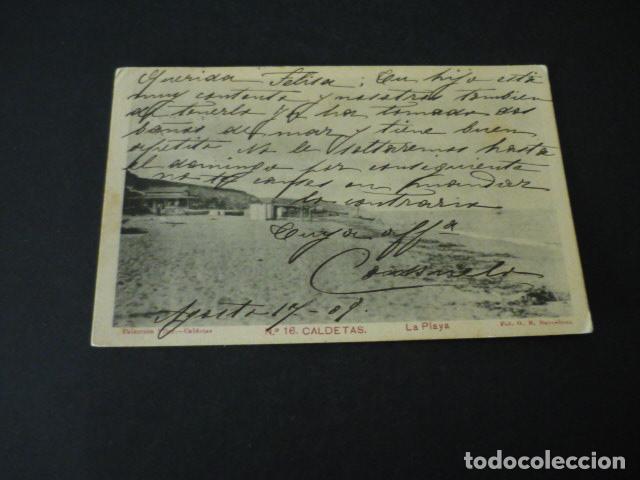 Querida Felisa: Tu hijo está
muy contento y nosotros tambien
de tenerlo Ya ha tomado dos
banos de mar y tiene buen
apetito No le soltaremos hasta
el domingo por consiguiente
no te canses en mandar
lo contrario
Tuya affª
Consuelo
Agosto 17-09.
Caldetas
N.º 16. CALDETAS. La Playa
Fot. O. R. Barcelona
todocoleccion.net